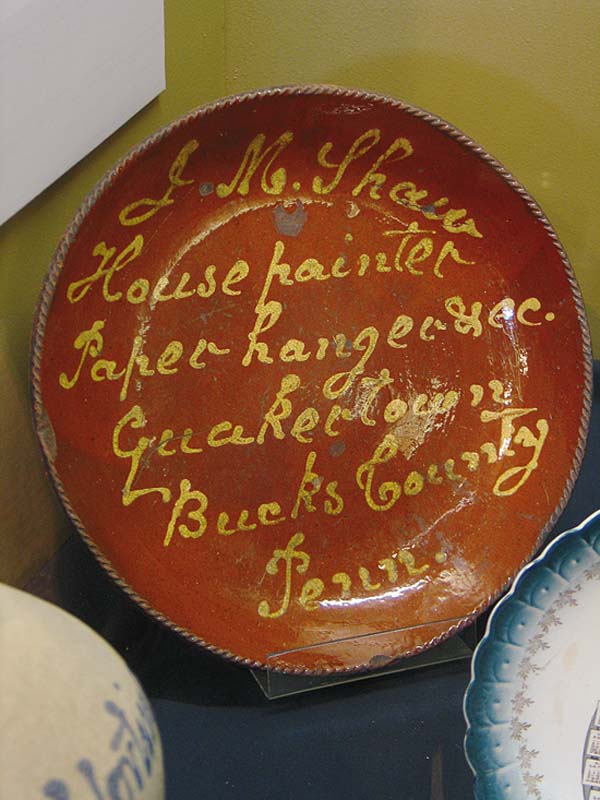 J. M. Shaw
House painter
Paper hanger &c.
Quakertown
Bucks County
Penn.